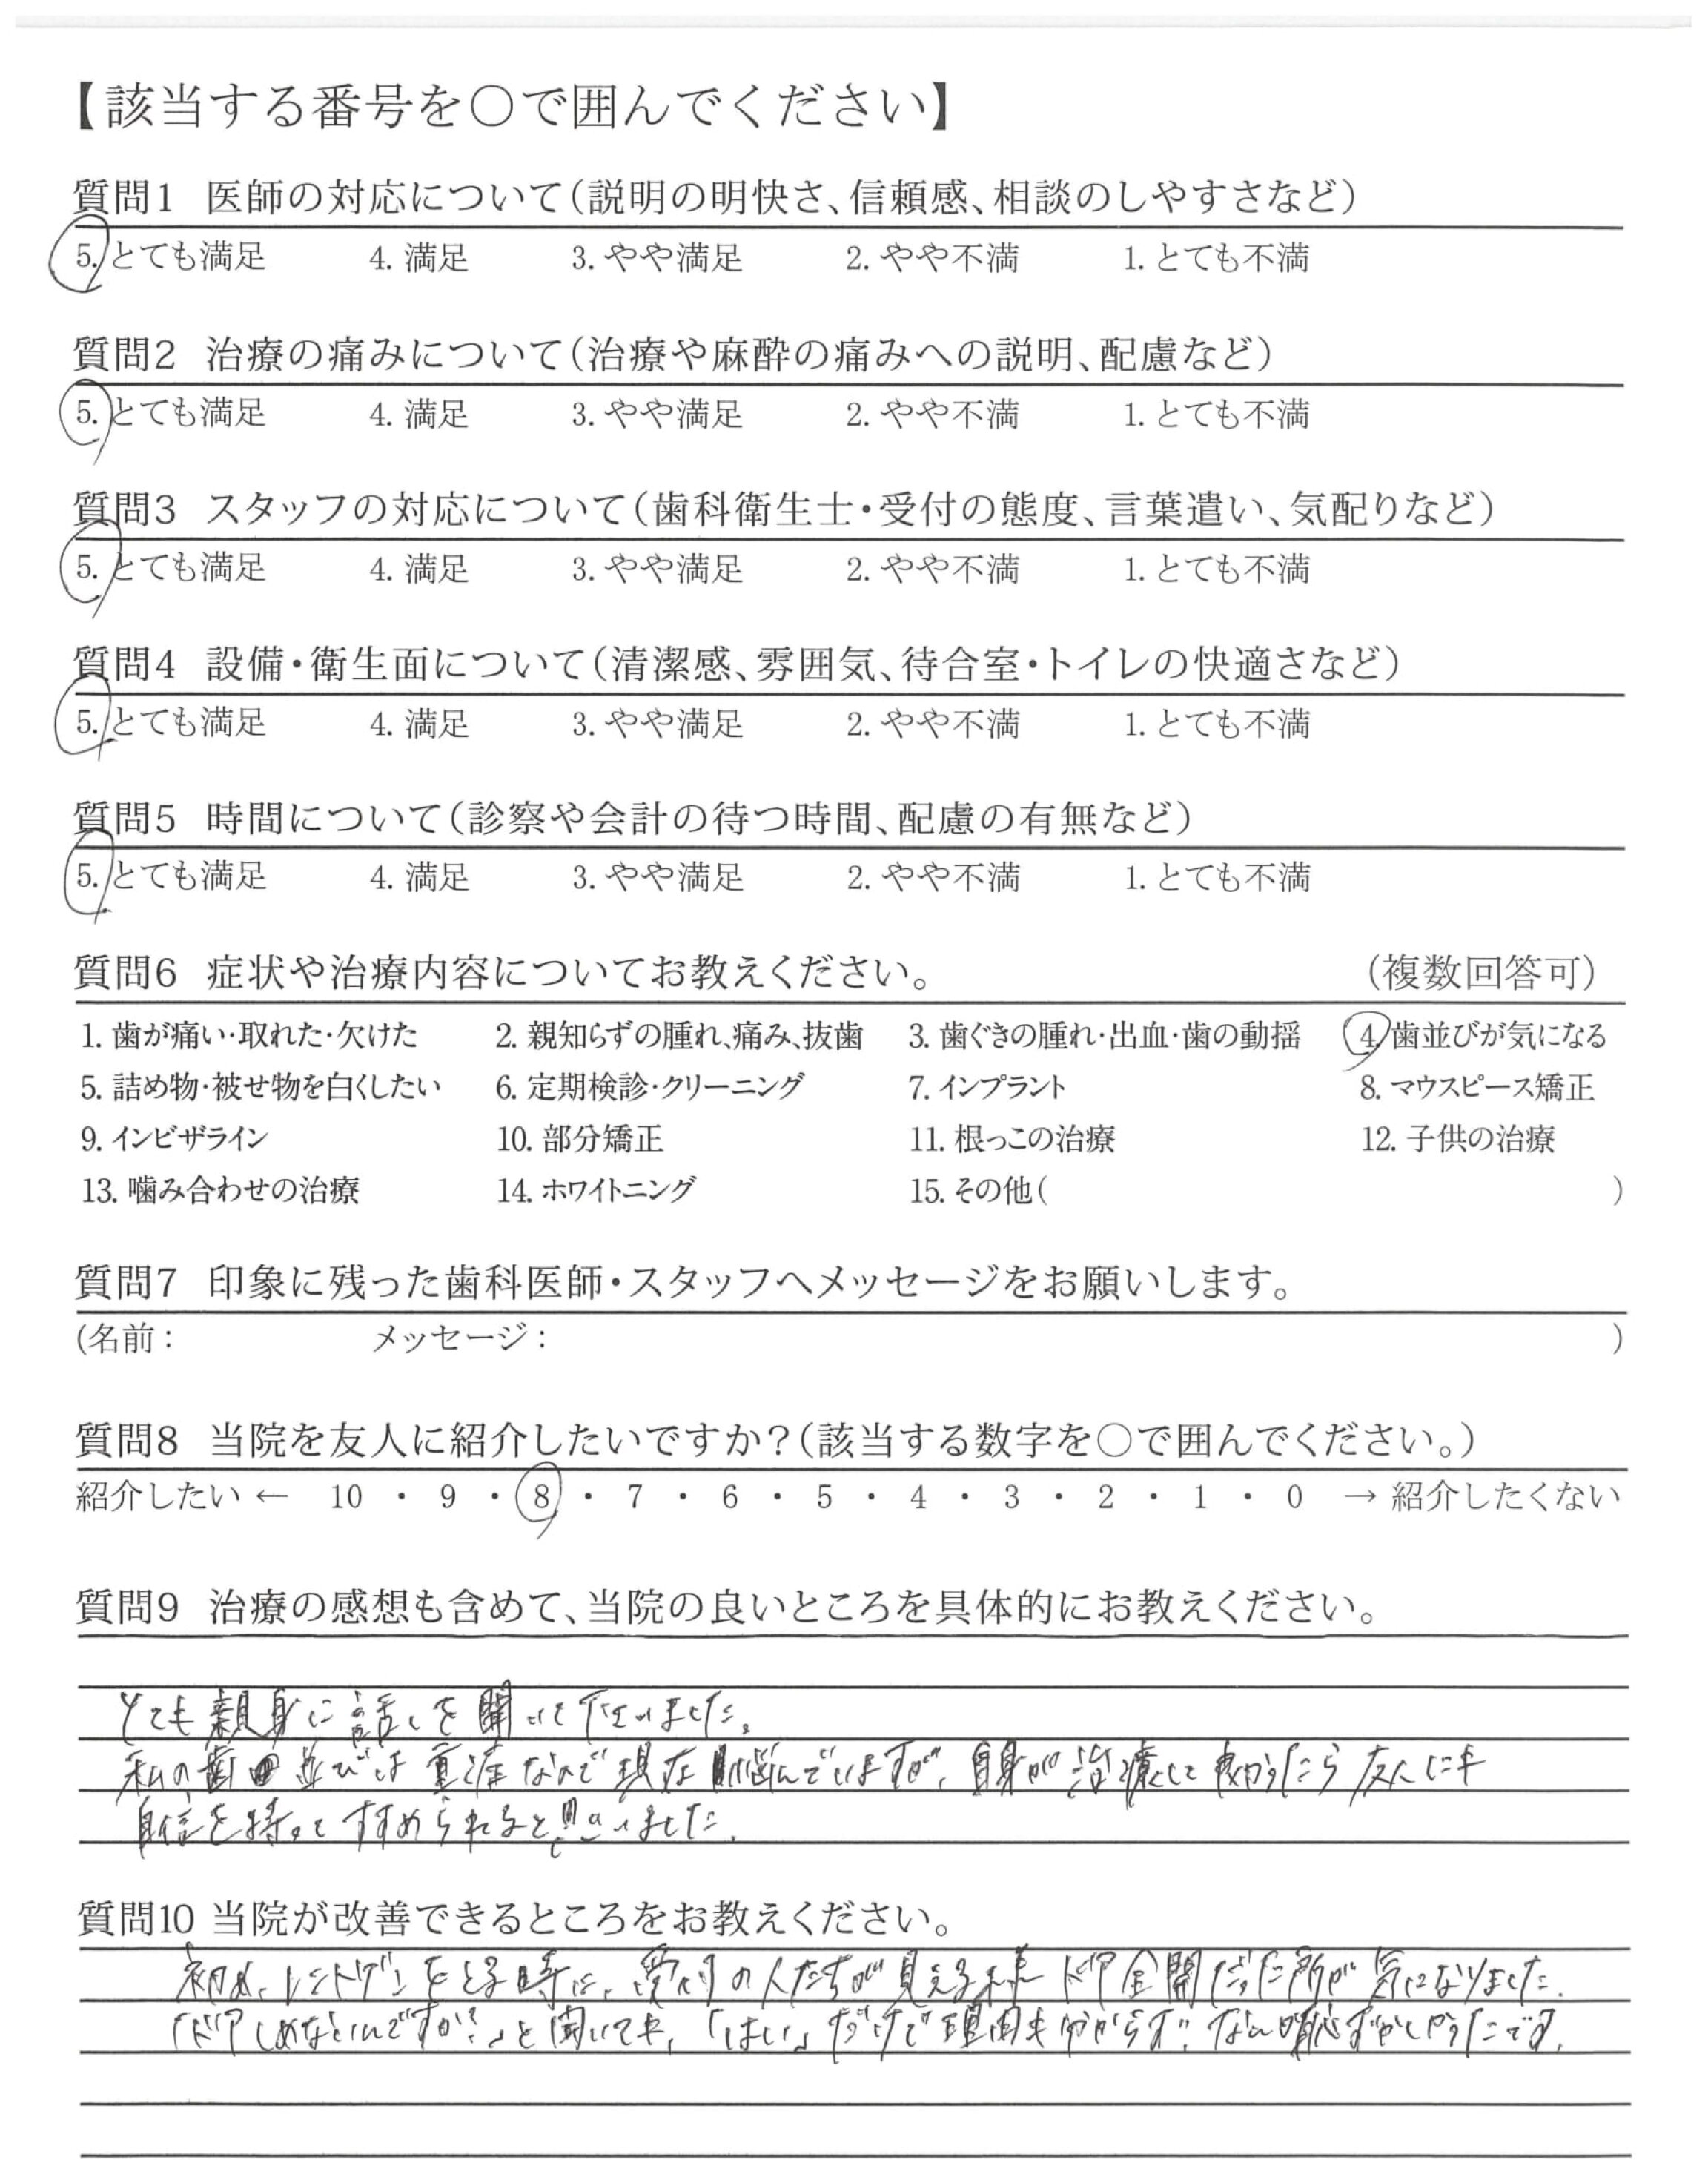 【該当する番号を○で囲んでください】
質問1 医師の対応について(説明の明快さ、信頼感、相談のしやすさなど)
5. とても満足 4. 満足 3. やや満足 2. やや不満 1. とても不満
質問2 治療の痛みについて(治療や麻酔の痛みへの説明、配慮など)
5. とても満足 4. 満足 3. やや満足 2. やや不満 1. とても不満
質問3 スタッフの対応について(歯科衛生士・受付の態度、言葉遣い、気配りなど)
5. とても満足 4. 満足 3. やや満足 2. やや不満 1. とても不満
質問4 設備・衛生面について(清潔感、雰囲気、待合室・トイレの快適さなど)
5. とても満足 4. 満足 3. やや満足 2. やや不満 1. とても不満
質問5 時間について(診察や会計の待つ時間、配慮の有無など)
5. とても満足 4. 満足 3. やや満足 2. やや不満 1. とても不満
質問6 症状や治療内容についてお教えください。 (複数回答可)
1. 歯が痛い・取れた・欠けた 2. 親知らずの腫れ、痛み、抜歯 3. 歯ぐきの腫れ・出血・歯の動揺 4. 歯並びが気になる
5. 詰め物・被せ物を白くしたい 6. 定期検診・クリーニング 7. インプラント 8. マウスピース矯正
9. インビザライン 10. 部分矯正 11. 根っこの治療 12. 子供の治療
13. 噛み合わせの治療 14. ホワイトニング 15. その他( )
質問7 印象に残った歯科医師・スタッフへメッセージをお願いします。
(名前: メッセージ: )
質問8 当院を友人に紹介したいですか?(該当する数字を○で囲んでください。)
紹介したい ← 10 ・ 9 ・ 8 ・ 7 ・ 6 ・ 5 ・ 4 ・ 3 ・ 2 ・ 1 ・ 0 → 紹介したくない
質問9 治療の感想も含めて、当院の良いところを具体的にお教えください。
とても親身に話しを聞いて下さいました。
私の歯並びは重症なので現在悩んでいますが、自身が治療して良かったら友人にも
自信を持ってすすめられると思いました。
質問10 当院が改善できるところをお教えください。
初め、レントゲンをとる時に、受付の人たちが見える様ドア全開だった所が気になりました。
「ドアしめないんですか?」と聞いても、「はい」だけで理由も分からず、なんか恥ずかしかったです。